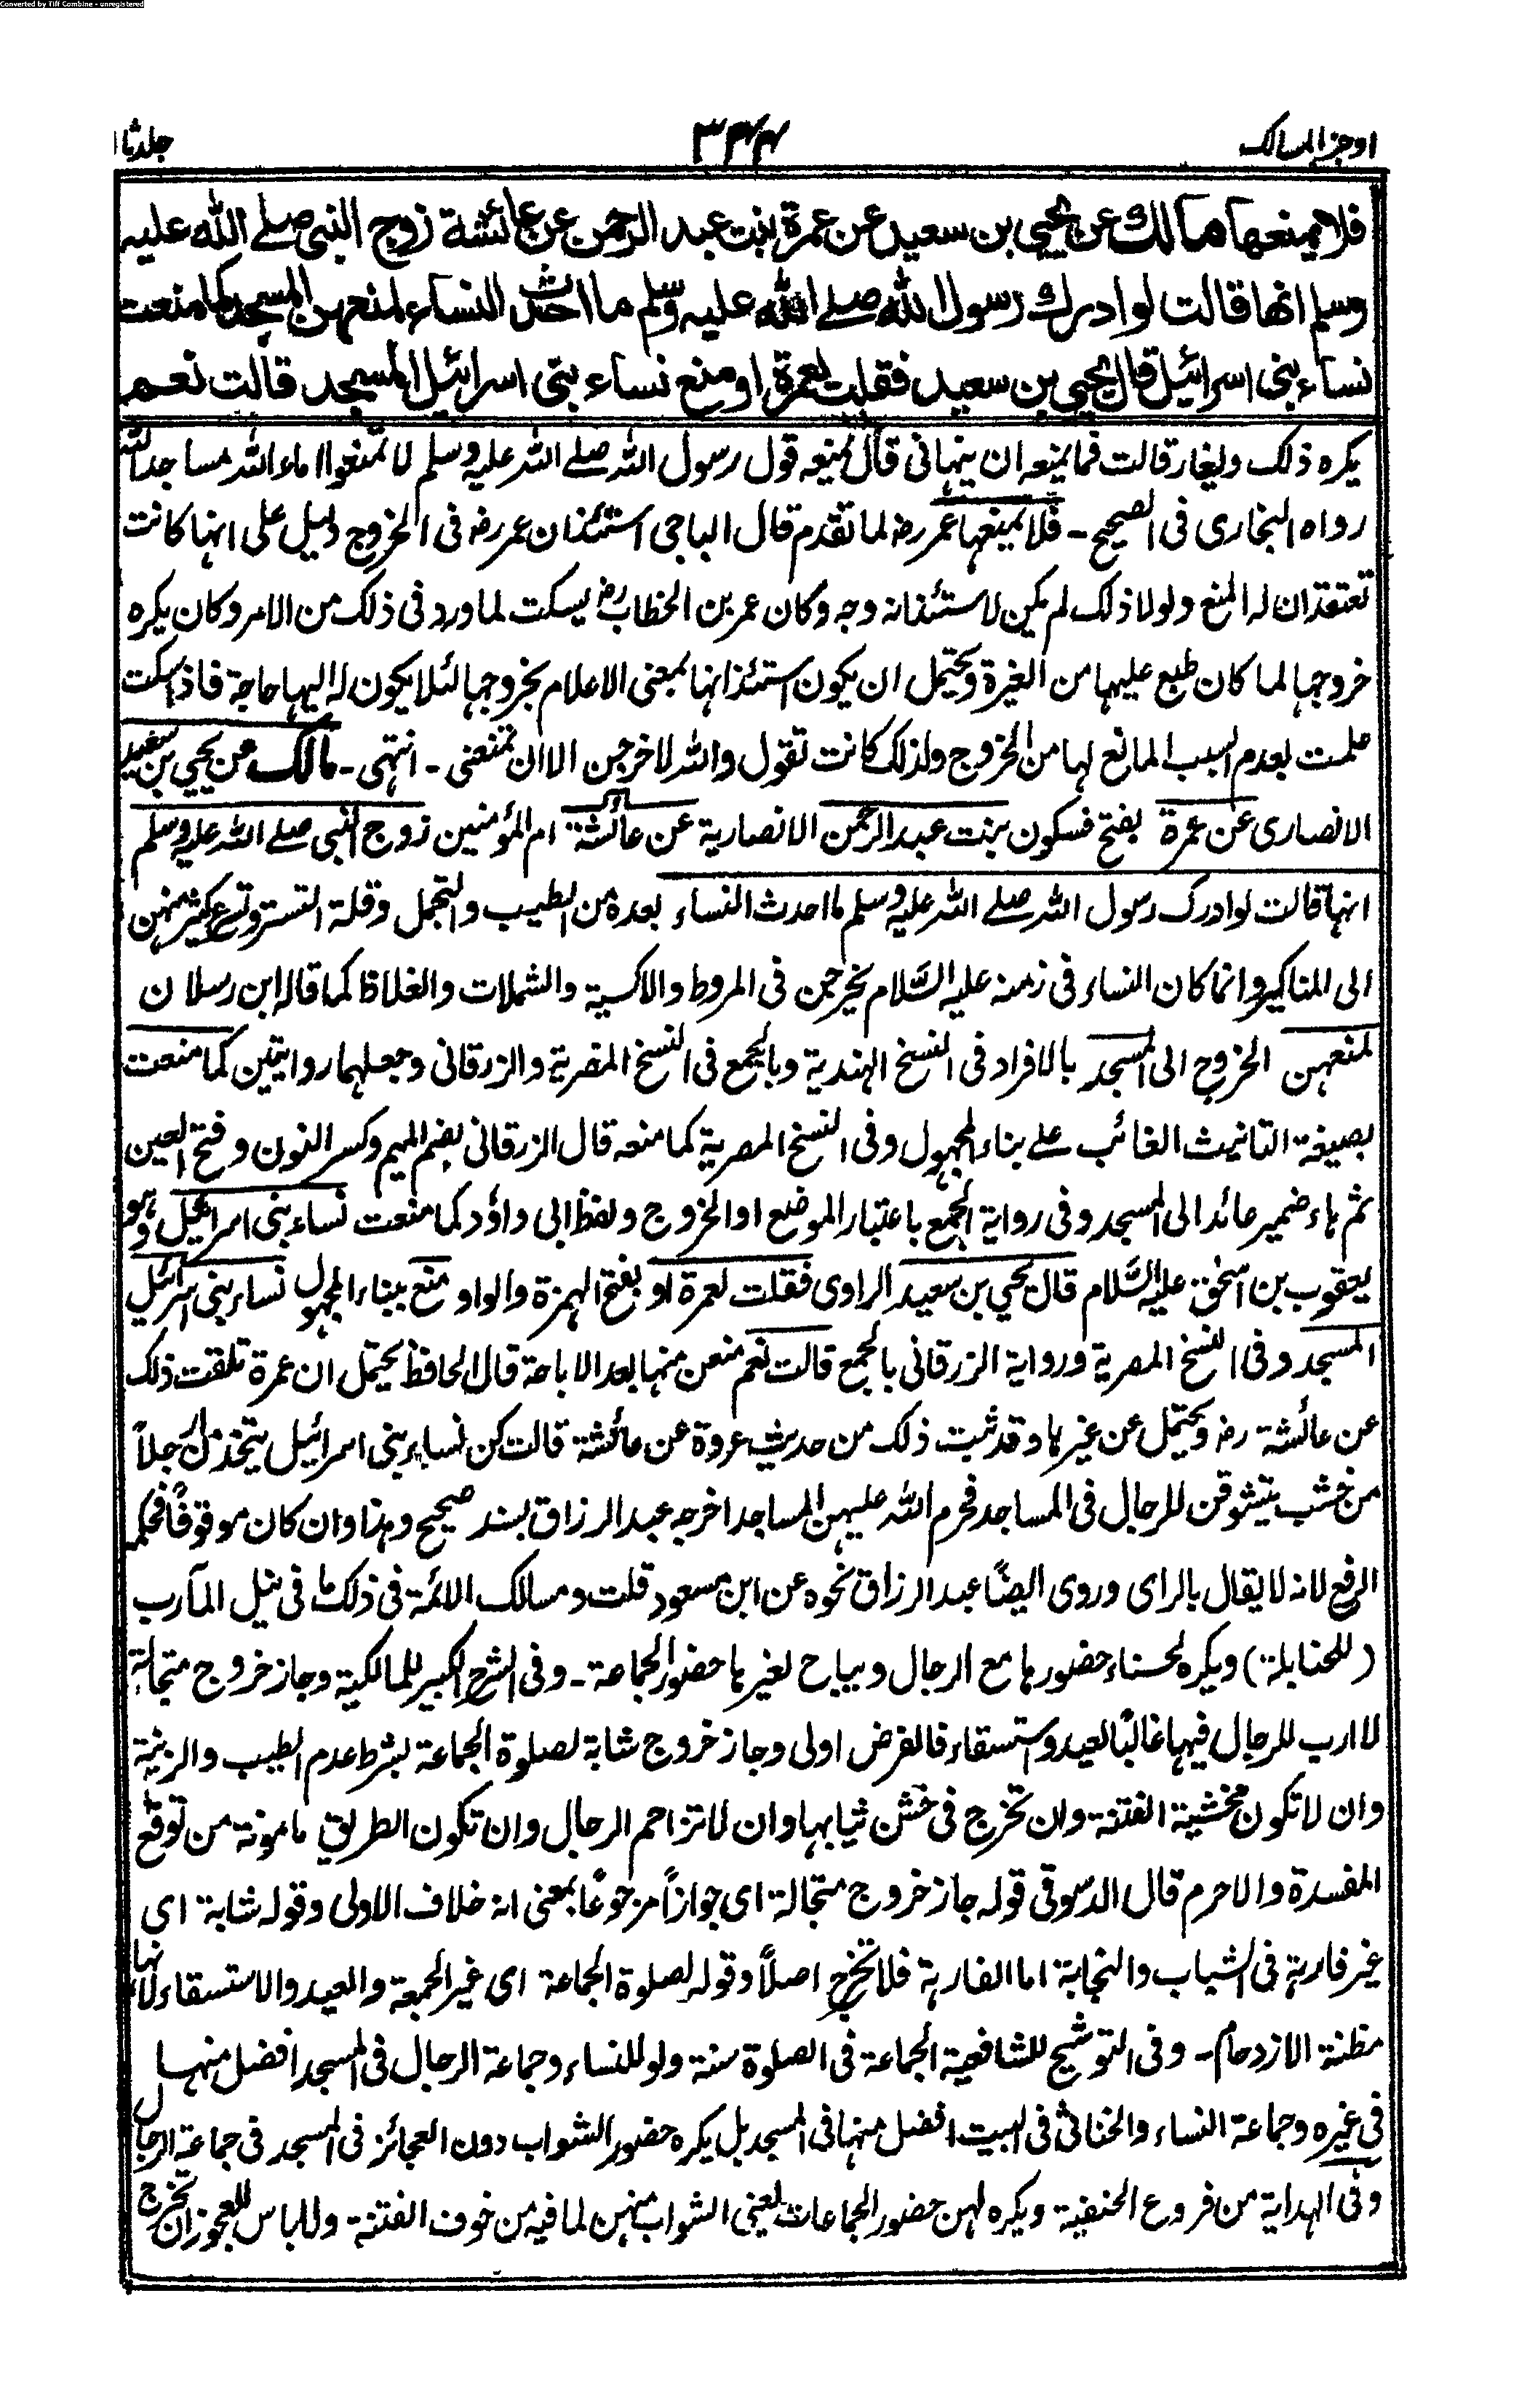 Converted by Tiff Combine - unregistered
اوجز المسالك
٣٤٤
جلد ثا
فلا يمنعها مالك عن يحيى بن سعيد عن عمرة بنت عبد الرحمن عن عائشة زوج النبي صلے الله عليه
وسلم انها قالت لو ادرك رسول الله صلے الله عليه وسلم ما احدث النساء لمنعهن المسجد كما منعت
نساء بنى اسرائيل قال يحيى بن سعيد فقلت لعمرة او منع نساء بنى اسرائيل المسجد قالت نعم
يكره ذلك ويغار قالت فما يمنعه ان ينهانى قال يمنعه قول رسول الله صلے الله عليه وسلم لا تمنعوا اماء الله مساجد الله
رواه البخارى فى الصحيح ـ فلا يمنعها عمر رضـ لما تقدم قال الباجى استئذان عمر رضـ فى الخروج دليل على انها كانت
تعتقد ان له المنع ولولا ذلك لم يكن لاستئذانه وجه وكان عمر بن الخطاب رضـ يسكت لما ورد فى ذلك من الامر وكان يكره
خروجها لما كان طبع عليها من الغيرة ويحتمل ان يكون استئذانها بمعنى الاعلام بخروجها لئلا يكون له اليها حاجة فاذا سكت
علمت بعدم السبب المانع لها من الخروج ولذلك كانت تقول والله لاخرجن الا ان تمنعنى ـ انتهى ـ مالك عن يحيى بن سعيد
الانصارى عن عمرة بفتح فسكون بنت عبد الرحمن الانصارية عن عائشة ام المؤمنين زوج النبى صلے الله عليه وسلم
انها قالت لو ادرك رسول الله صلے الله عليه وسلم ما احدث النساء بعده من الطيب والتجمل وقلة التستر وتسرع كثير منهن
الى المناكير وانما كان النساء فى زمنه عليه السَّلام يخرجن فى المروط والاكسية والشملات والغلاظ كما قاله ابن رسلان
لمنعهن الخروج الى المسجد بالافراد فى النسخ الهندية وبالجمع فى النسخ المصرية والزرقانى وجعلهما روايتين كما منعت
بصيغة التانيث الغائب علے بناء المجهول وفى النسخ المصرية كما منعه قال الزرقانى بضم الميم وكسر النون وفتح العين
ثم هاء ضمير عائد الى المسجد وفى رواية الجمع باعتبار الموضع او الخروج ولفظ ابى داؤد كما منعت نساء بنى اسرائيل وهو
يعقوب بن اسحٰق عليه السَّلام قال يحيى بن سعيد الراوى فقلت لعمرة او بفتح الهمزة والواو منع ببناء المجهول نساء بنى اسرائيل
المسجد وفى النسخ المصرية ورواية الزرقانى بالجمع قالت نعم منعن منها بعد الاباحة قال الحافظ يحتمل ان عمرة تلقت ذلك
عن عائشة رضـ ويحتمل عن غيرها وقد ثبت ذلك من حديث عروة عن عائشة قالت كن نساء بنى اسرائيل يتخذن ارجلاً
من خشب يتشوقن للرجال فى المساجد فحرم الله عليهن المساجد اخرجه عبد الرزاق بسند صحيح وهذا وان كان موقوفًا فحكمه
الرفع لانه لا يقال بالراى وروى ايضًا عبد الرزاق نحوه عن ابن مسعود قلت ومسالك الائمة فى ذلك ما فى نيل المآرب
(للحنابلة) ويكره لحسناء حضورها مع الرجال ويباح لغيرها حضور الجماعة ـ وفى الشرح الكبير للمالكية وجاز خروج متجالة
لا ارب للرجال فيها غالبًا لعيد واستسقاء فالفرض اولى وجاز خروج شابة لصلوة الجماعة بشرط عدم الطيب والزينة
وان لا تكون مخشية الفتنة وان تخرج فى خشن ثيابها وان لا تزاحم الرجال وان تكون الطريق مامونة من توقع
المفسدة والا حرم قال الدسوقى قوله جاز خروج متجالة اى جوازاً مرجوحًا بمعنى انه خلاف الاولى وقوله شابة اى
غير فارهة فى الشباب والنجابة اما الفارهة فلا تخرج اصلاً وقوله لصلوة الجماعة اى غير الجمعة والعيد والاستسقاء لانها
مظنة الازدحام ـ وفى التوشيح للشافعية الجماعة فى الصلوة سنة ولو للنساء وجماعة الرجال فى المسجد افضل منها
فى غيره وجماعة النساء والخناثى فى البيت افضل منها فى المسجد بل يكره حضور الشواب دون العجائز فى المسجد فى جماعة الرجال
وفى الهداية من فروع الحنفية ويكره لهن حضور الجماعات يعنى الشواب منهن لما فيه من خوف الفتنة ولا باس للعجوز ان تخرج